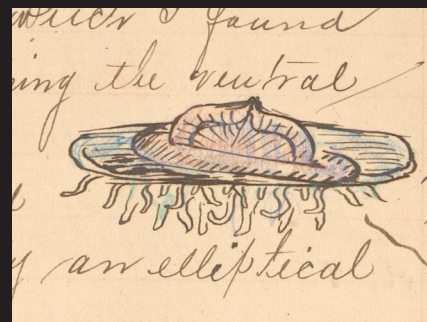 which I found
ning the ventral
y an elliptical